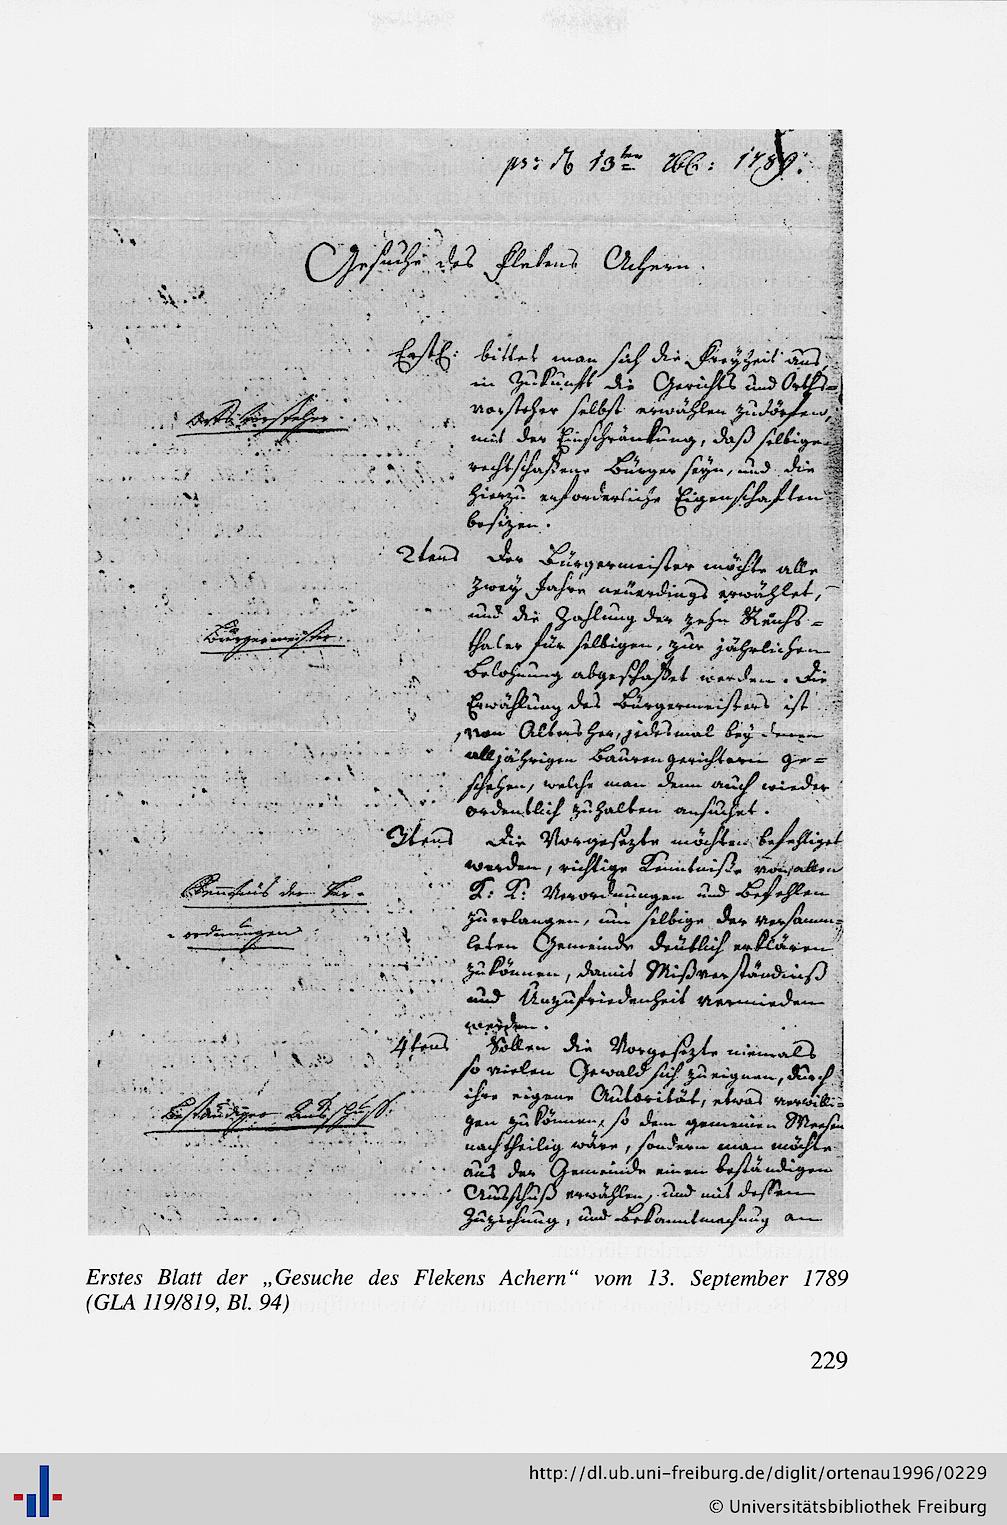 13ten 7bl: 1789.
Gesuche des Flekens Achern.
Erstl: bittet man sich die Freyheit aus,
in Zukunft die Gerichts und Orths=
vorsteher selbst erwählen zudörfen,
mit der Einschränkung, daß selbige
rechtschaffene Bürger seyn, und die
hierzu erforderliche Eigenschaften
besizen.
Ortsvorsteher.
2tens Der Bürgermeister möchte alle
zwey Jahre neüerdings erwählet,
und die Zahlung der zehn Reichs=
thaler für selbigen, zur jährlichen
Belohnung abgeschaffet werden. Die
Erwählung des Bürgermeisters ist
von Alters her, jedesmal bey denen
alljährigen Bauren gerichteren ge=
schehen, welche man denn auch wieder
ordentlich zuhalten ansuchet.
Bürgermeister.
3tens Die Vorgesezte möchten befehliget
werden, richtige Kenntniße von allen
K: K: Verordnungen und Befehlen
zuerlangen, um selbige der versamm=
leten Gemeinde deutlich erklären
zukönnen, damit Mißverständniß
und Unzufriedenheit vermieden
werden.
Kenntnüs der Ver-
ordnungen
4tens Sollen die Vorgesezte niemals
so vielen Gewald sich zueignen, durch
ihre eigene Autorität, etwas verwilli=
gen zukönnen, so dem gemeinen Weesen
nachtheilig wäre, sondern man möchte
aus der Gemeinde einen beständigen
Ausschuß erwählen, und mit dessen
Zuziehung, und Bekanntmachung an
Beständiger Ausschuss.
Erstes Blatt der „Gesuche des Flekens Achern“ vom 13. September 1789
(GLA 119/819, Bl. 94)
229
http://dl.ub.uni-freiburg.de/diglit/ortenau1996/0229
© Universitätsbibliothek Freiburg